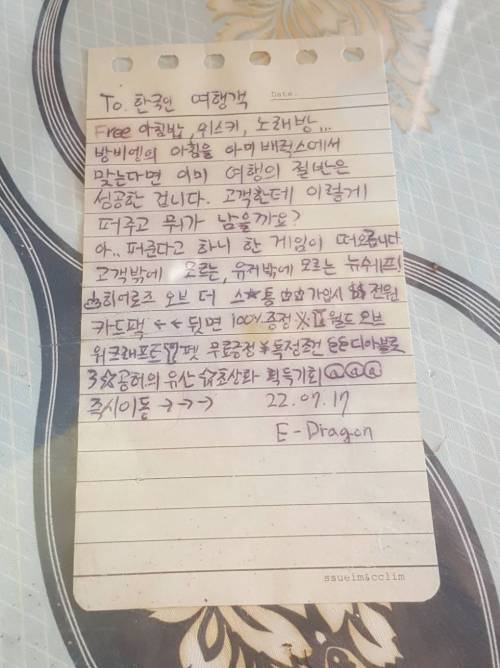 To. 한국인 여행객
Date.
Free 아침밥, 위스키, 노래방...
방비엥의 아침을 아미 배럭스에서
맞는다면 이미 여행의 절반은
성공한 겁니다. 고객한테 이렇게
퍼주고 뭐가 남을까요?
아.. 퍼준다고 하니 한 게임이 떠오릅니다
고객밖에 모르는, 유저밖에 모르는
히어로즈 오브 더 스★톰 ☆☆가입시 전원
카드팩 ←← 뒷면 100% 증정 ※ 월드 오브
워크래프트 펫 무료증정 ￥ 특정조건 디아블로
3 ☆공허의 유산 ☆초상화 획득기회 @@@
즉시이동 →→→ 22.07.17
E-Dragon
ssueim&cclim